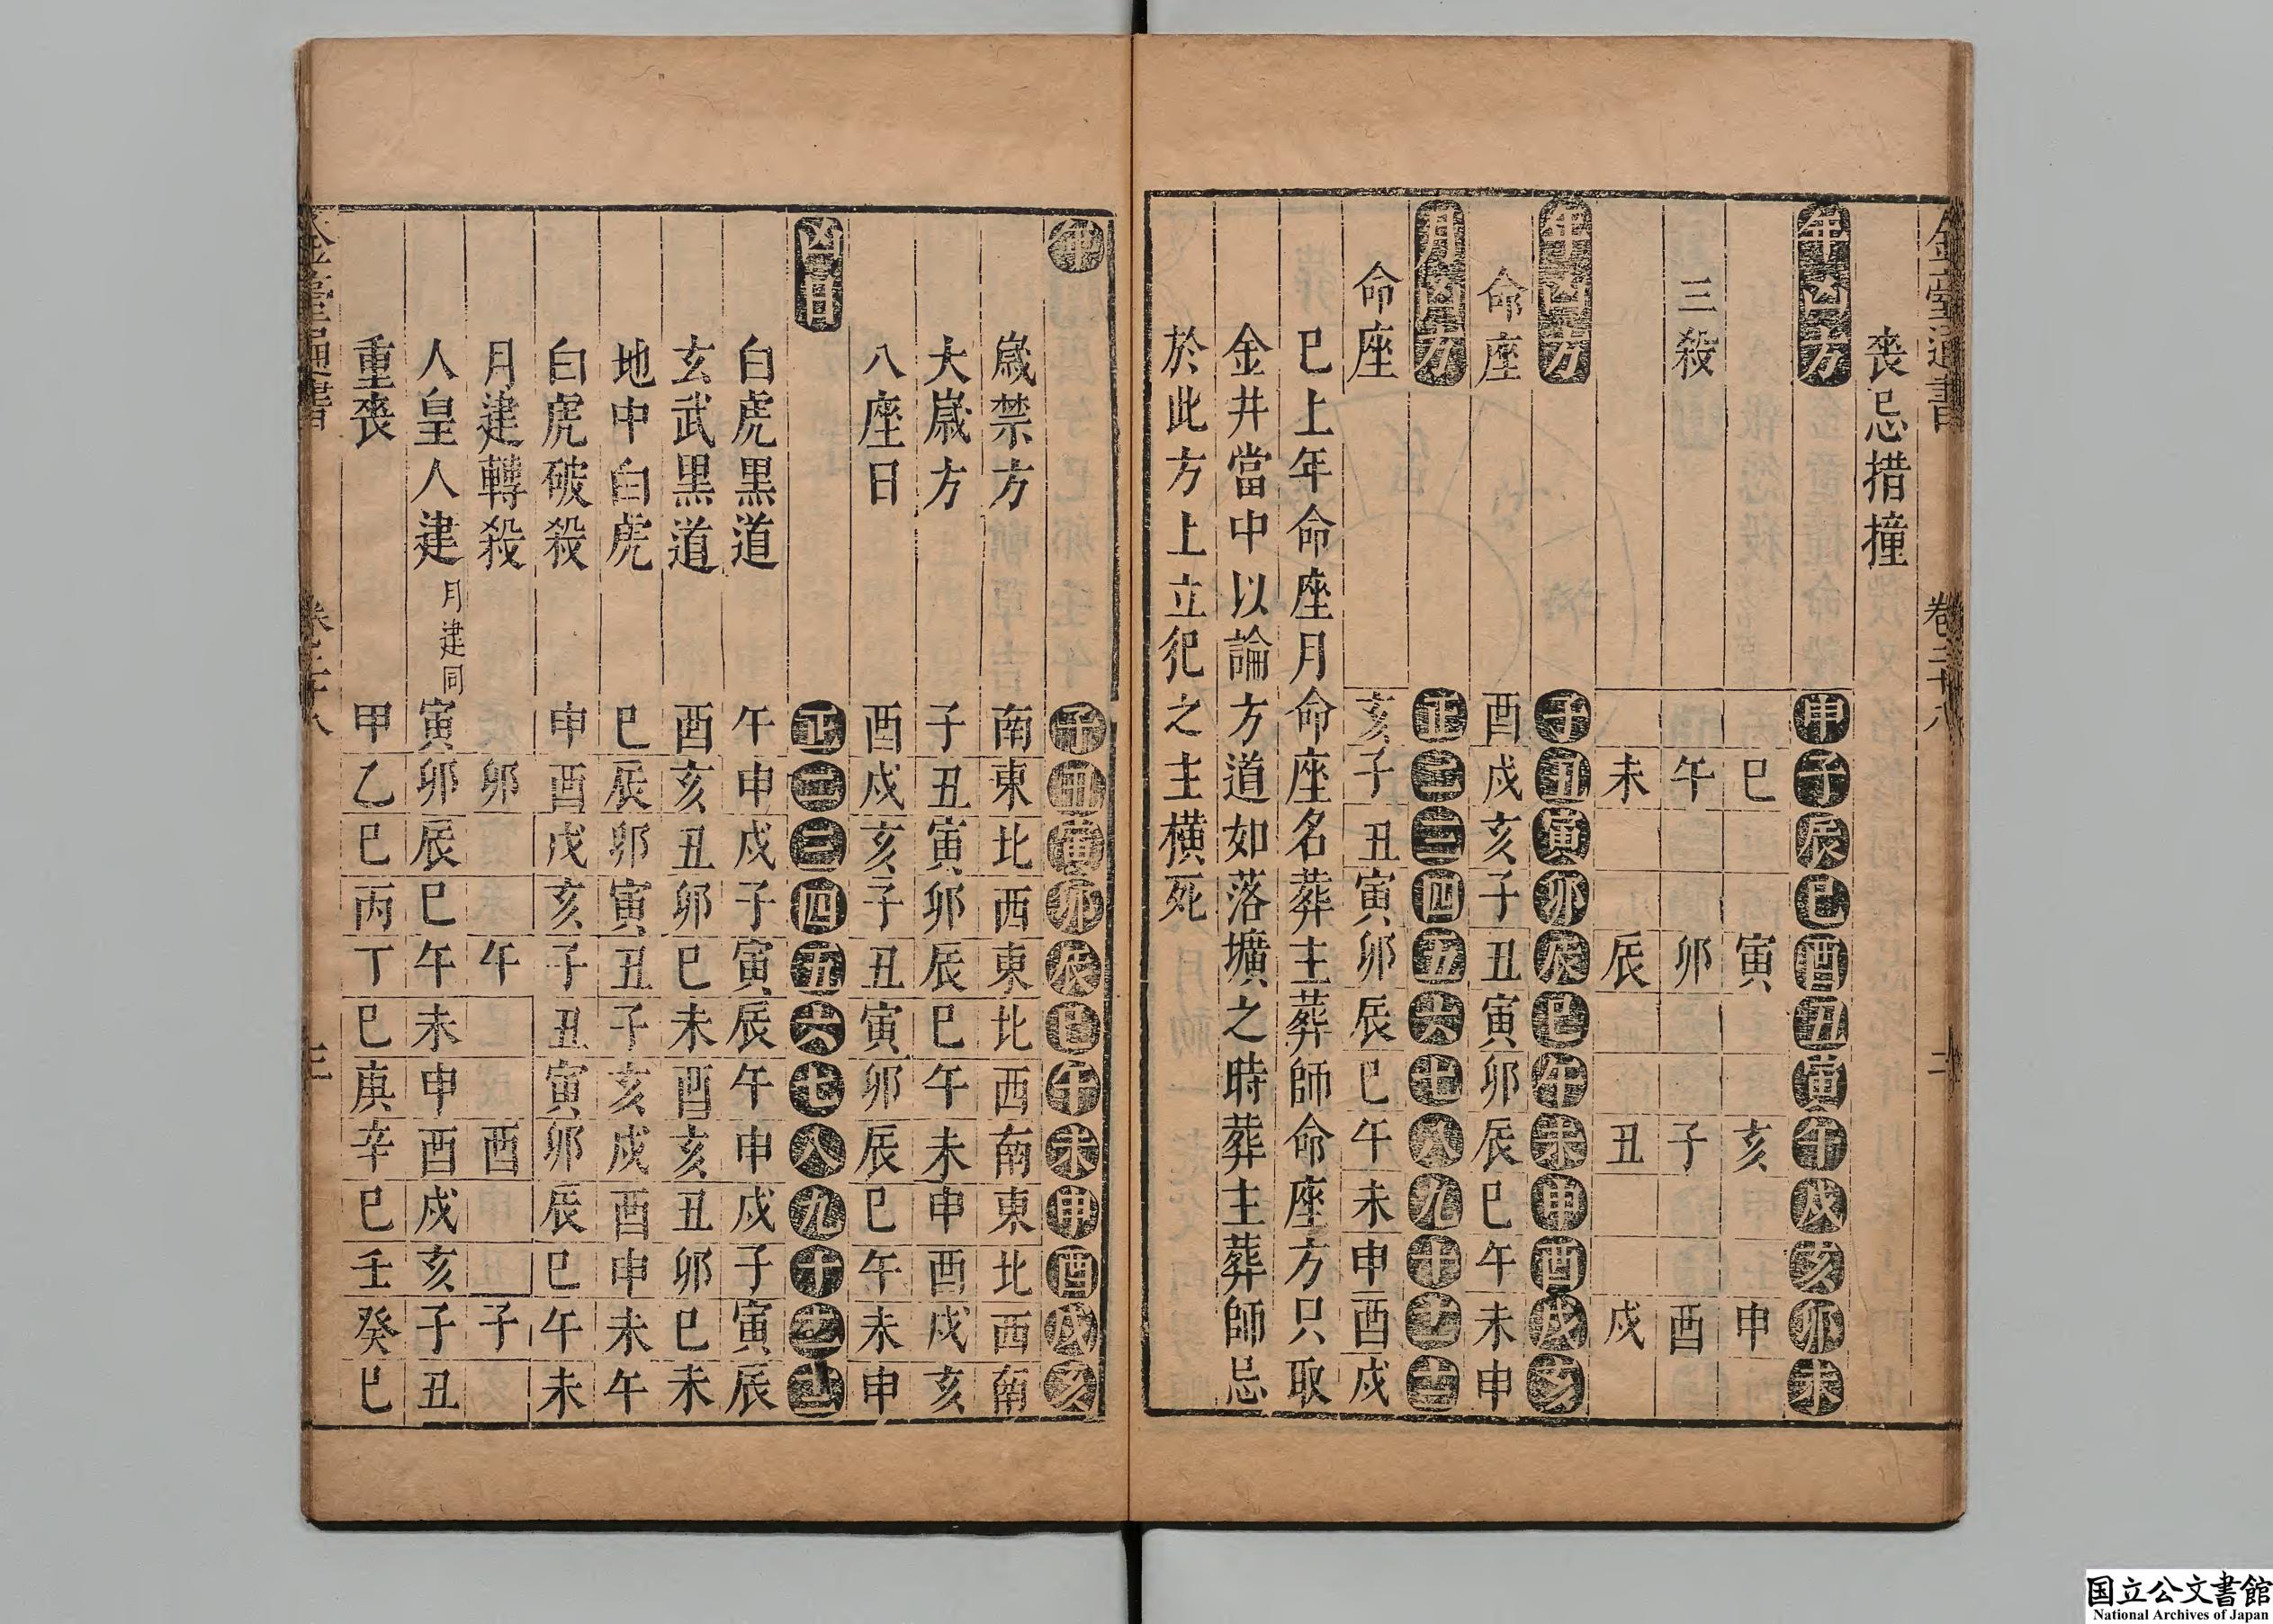 金臺通書 卷三十八 二
喪忌措撞
年凶方 申子辰巳酉丑寅午戌亥卯未
巳 寅 亥 申
三殺 午 卯 子 酉
未 辰 丑 戌
年凶方 子丑寅卯辰巳午未申酉戌亥
命座 酉戌亥子丑寅卯辰巳午未申
月凶方 正二三四五六七八九十十一十二
命座 亥子丑寅卯辰巳午未申酉戌
巳上年命座月命座名葬主葬師命座方只取
金井當中以論方道如落壙之時葬主葬師忌
於此方上立犯之主橫死
年 子丑寅卯辰巳午未申酉戌亥
歲禁方 南東北西東北西南東北西南
大歲方 子丑寅卯辰巳午未申酉戌亥
八座日 酉戌亥子丑寅卯辰巳午未申
凶日 正二三四五六七八九十十一十二
白虎黑道 午申戌子寅辰午申戌子寅辰
玄武黑道 酉亥丑卯巳未酉亥丑卯巳未
地中白虎 巳辰卯寅丑子亥戌酉申未午
白虎破殺 申酉戌亥子丑寅卯辰巳午未
月建轉殺 卯 午 酉 子
人皇人建 月建同 寅卯辰巳午未申酉戌亥子丑
重喪 甲乙巳丙丁巳庚辛巳壬癸巳
金臺通書 卷三十八 三
国立公文書館
National Archives of Japan